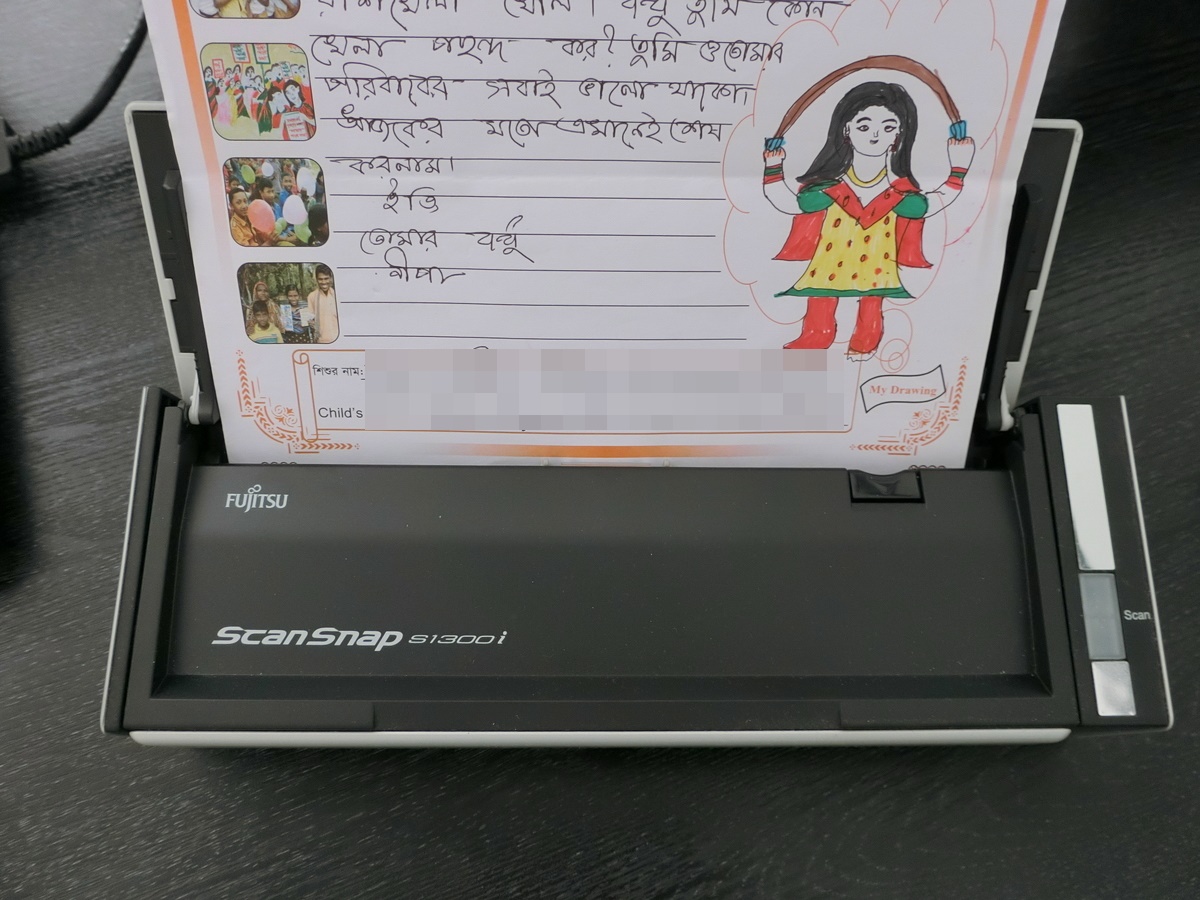 খেলি। বন্ধু তুমি কোন
খেলা পছন্দ কর? তুমি ও তোমার
পরিবারের সবাই ভালো থাকো
আজকের মতো এখানেই শেষ
করলাম।
ইতি
তোমার বন্ধু
নীপা
শিশুর নাম:
Child's
My Drawing
FUJITSU
ScanSnap S1300i
Scan